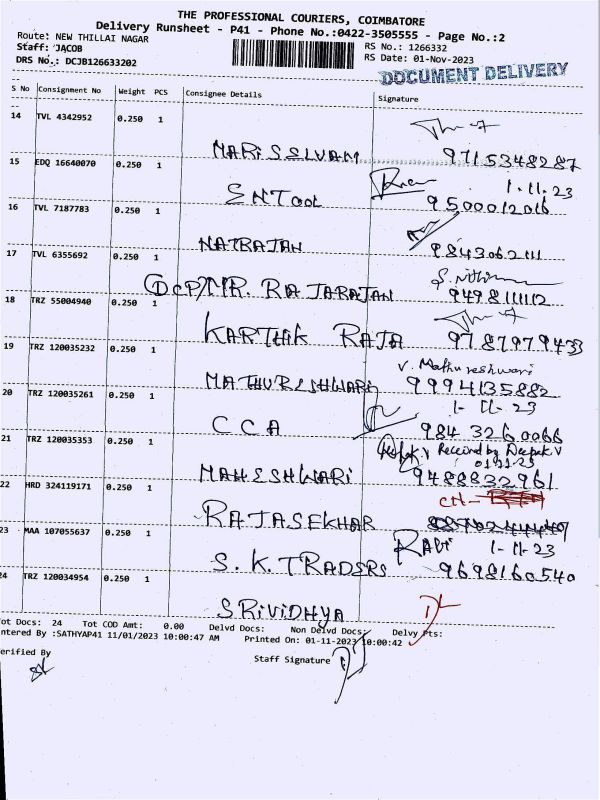 THE PROFESSIONAL COURIERS, COIMBATORE
Delivery Runsheet - P41 - Phone No.:0422-3505555 - Page No.:2
Route: NEW THILLAI NAGAR
RS No.: 1266332
Staff: JACOB
RS Date: 01-Nov-2023
DRS No.: DCJB126633202
DOCUMENT DELIVERY
S No Consignment No Weight PCS Consignee Details Signature
14 TVL 4342952 0.250 1
MARISSELVAM 9715348287
15 EDQ 16640070 0.250 1 1.11.23
SNTOOL 9500012016
16 TVL 7187783 0.250 1
NATRAJAN 9843062111
17 TVL 6355692 0.250 1
DCP/MR. RAJARAJAN 9498111112
18 TRZ 55004940 0.250 1
KARTHIK RAJA 9787979433
19 TRZ 120035232 0.250 1 V. Mathureshwari
MATHURESHWARI 9994135882
20 TRZ 120035261 0.250 1 1-11-23
CCA 9843260066
21 TRZ 120035353 0.250 1 Deepak.V Received by Deepak V
01-11-23
MAHESHWARI 9488832961
22 HRD 324119171 0.250 1
RAJASEKHAR
23 MAA 107055637 0.250 1 Ravi 1-11-23
S.K. TRADERS 9698160540
24 TRZ 120034954 0.250 1
SRIVIDHYA
Tot Docs: 24 Tot COD Amt: 0.00 Delvd Docs: Non Delvd Docs: Delvy Pts:
Entered By :SATHYAP41 11/01/2023 10:00:47 AM Printed On: 01-11-2023 10:00:42
Verified By
Staff Signature